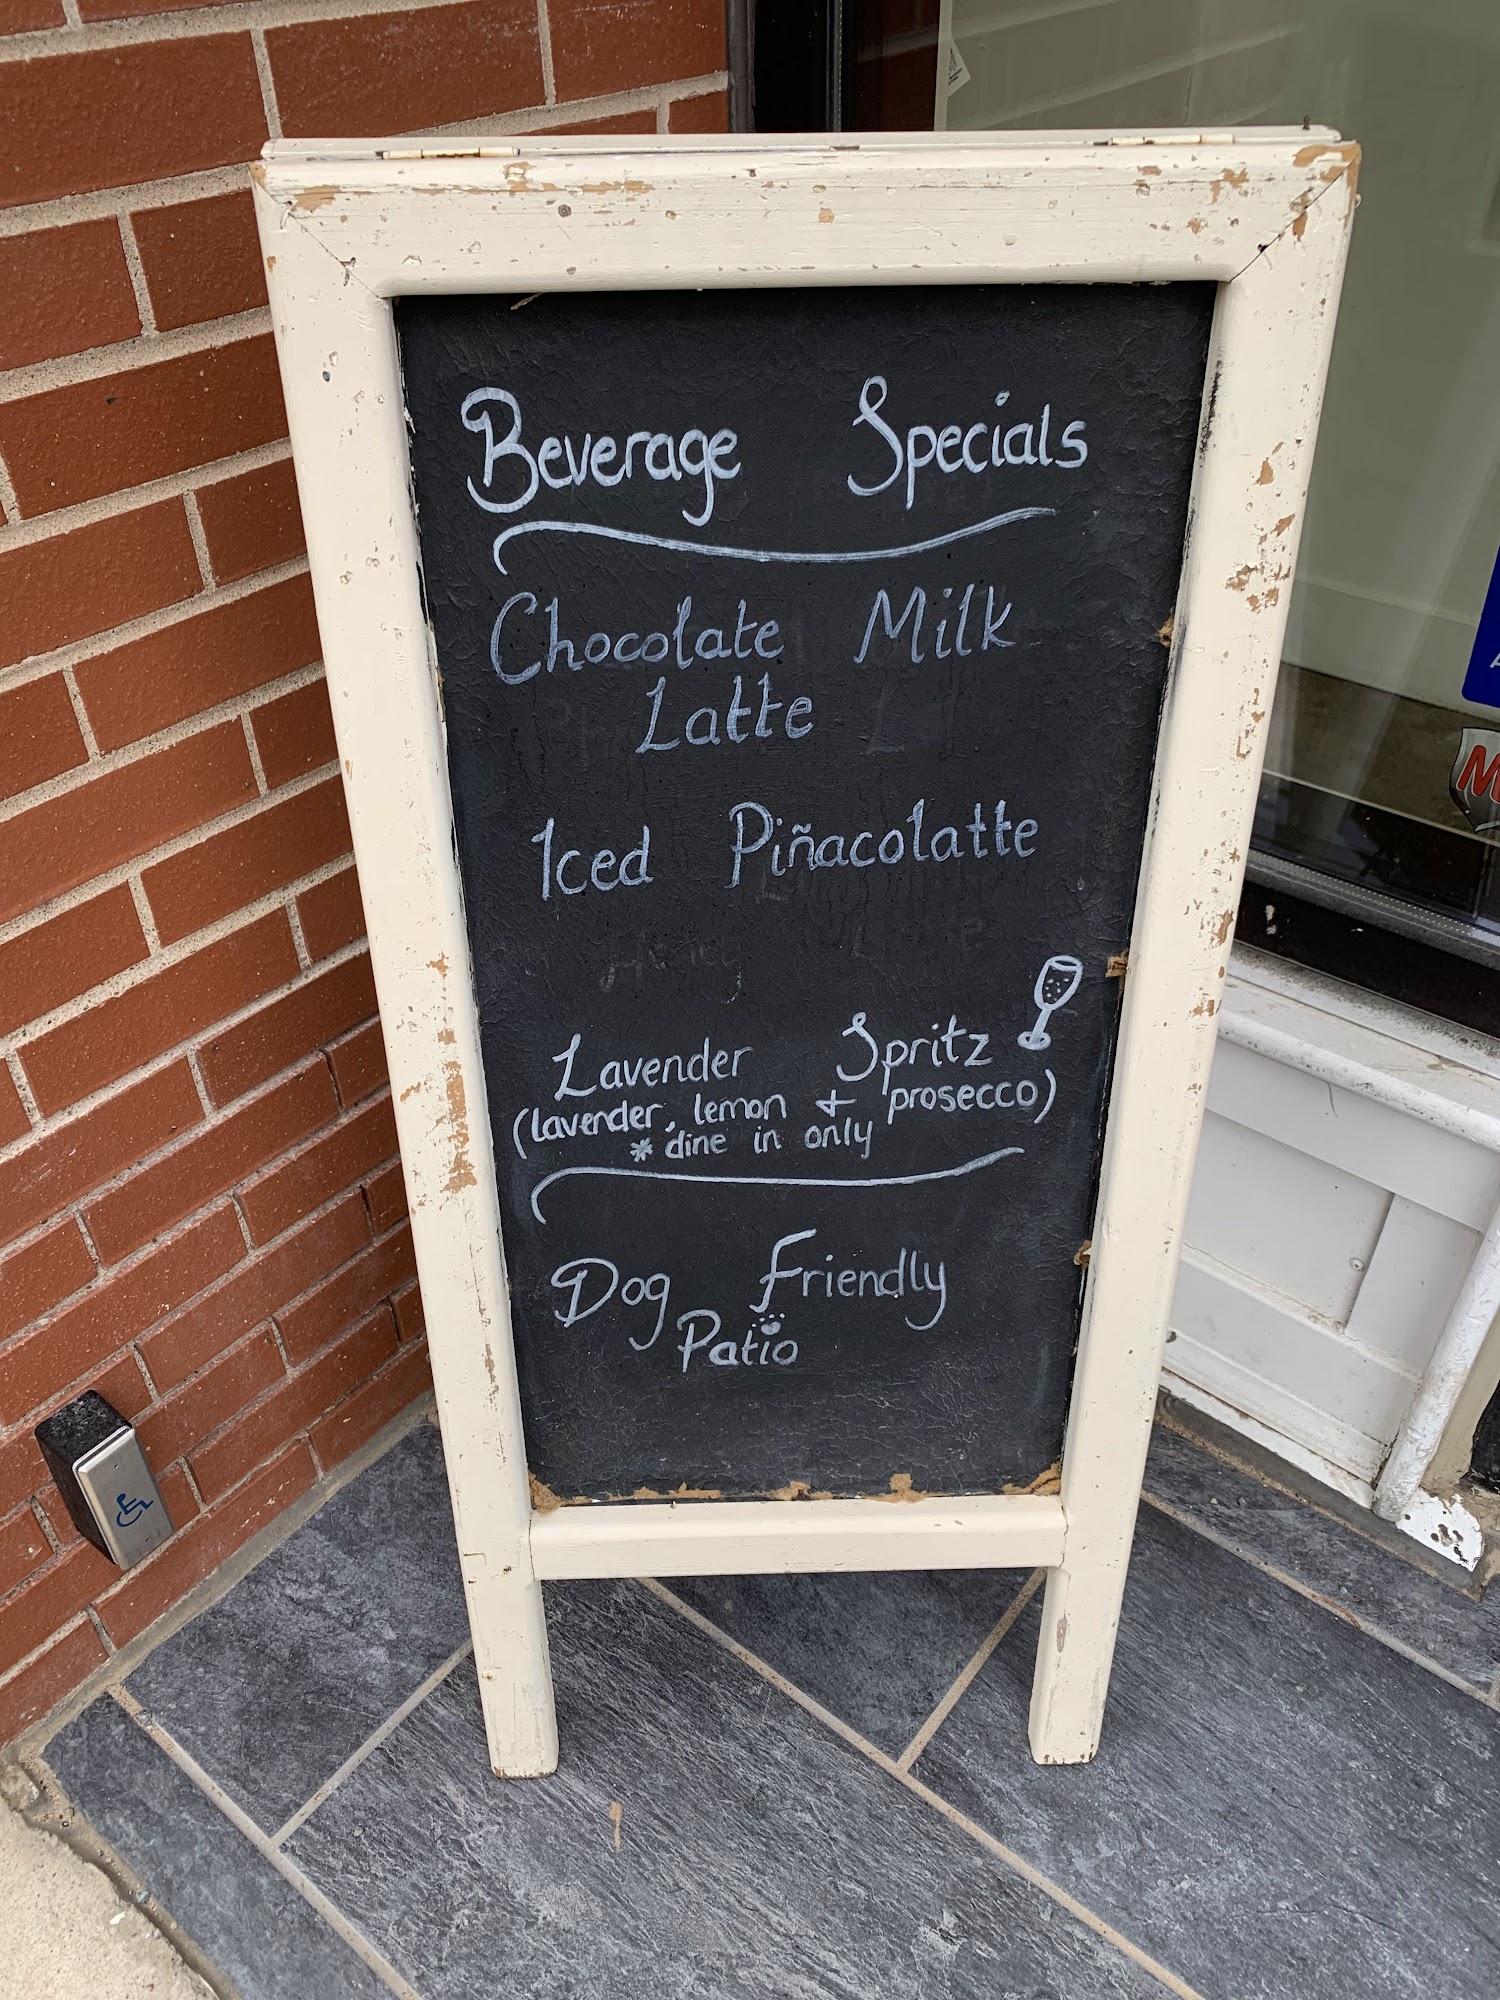 Beverage Specials
Chocolate Milk
Latte
Iced Piñacolatte
Lavender Spritz
(lavender, lemon + prosecco)
* dine in only
Dog Friendly
Patio